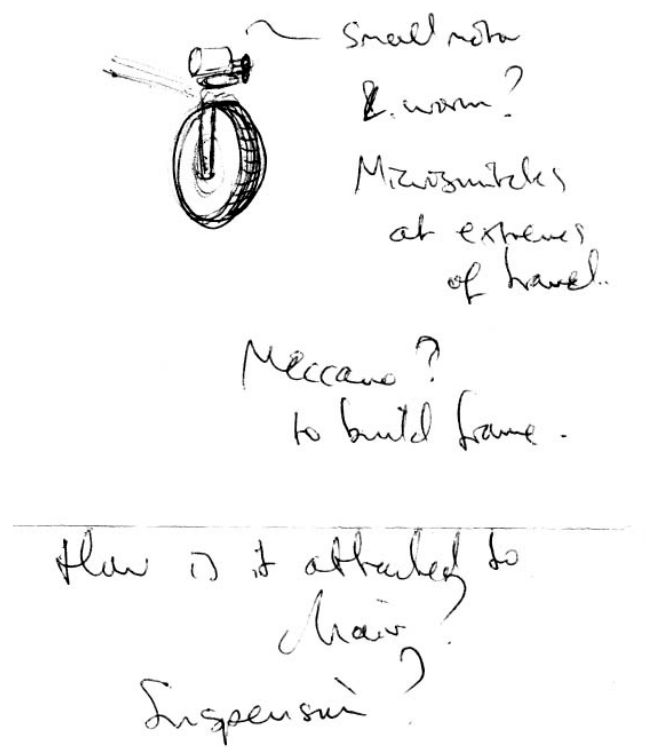 Small motor
& worm?
Microswitches
at extremes
of travel..
Meccano?
to build frame.
How is it attached to
chair?
Suspension?